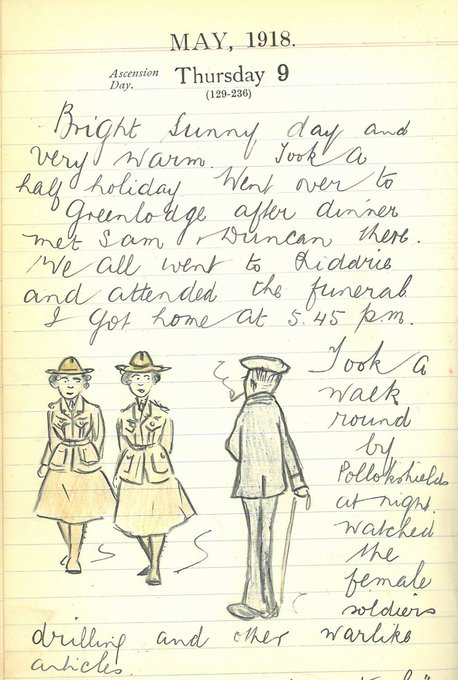 MAY, 1918.
Ascension Day.
Thursday 9
(129-236)
Bright sunny day and
very warm. Took a
half holiday Went over to
Greenlodge after dinner
met Sam & Duncan there.
We all went to Riddrie
and attended the funeral.
I got home at 5.45 p.m.
Took a
walk
round
by
Pollokshields
at night.
Watched
the
female
soldiers
drilling and other warlike
articles.